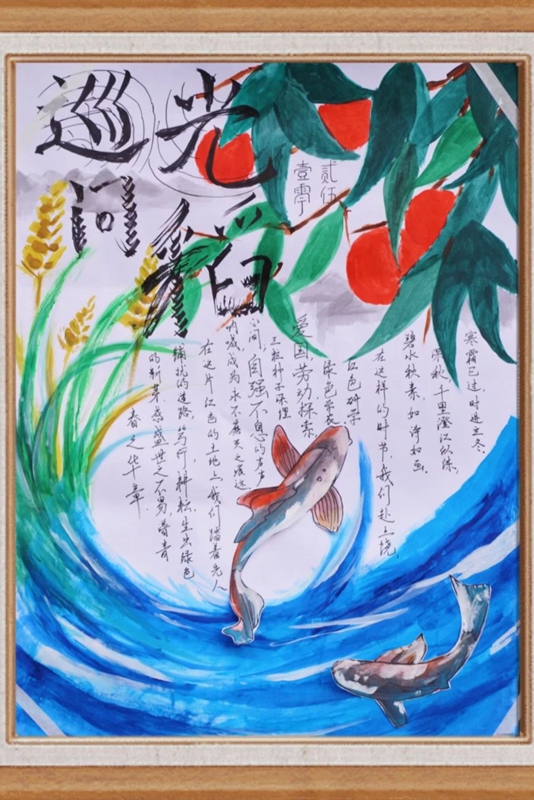 巡光
问稻
贰伍
壹零
寒霜已过,时近立冬.
深秋,千里澄江似练,
碧水秋素,如诗如画.
在这样的时节,我们赴上饶,
红色研学
绿色学农
爱国劳动探索
三粒种子埋
心间,自强不息的声声
呐喊,成为永不磨灭之痕迹
在这片红色的土地上我们踏着先人
铺就的道路,笃行耕耘,生出绿色
的新芽,感盛世之不易,普青
春之华章.